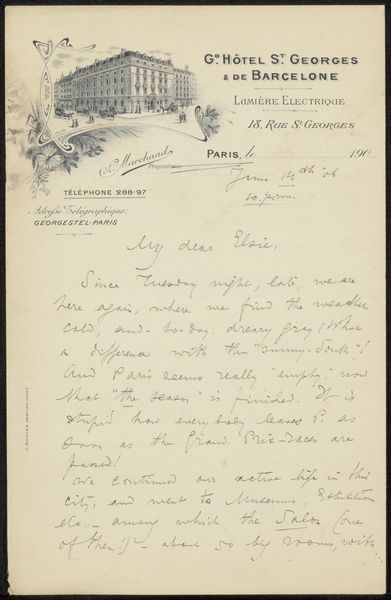 Gd. Hôtel St. Georges
& de Barcelone
Lumière Electrique
18, Rue St Georges
A. Marchand
Propriétaire
Paris, le 190
June 14th 06
10 p.m.
Téléphone 288-97
Adresse Télégraphique:
GEORGESTEL-PARIS
My dear Elsie,
Since Tuesday night, late, we are
here again, where we find the weather
cold, and to-day dreary gray! What
a difference with the "sunny-South"!
And Paris seems really "empty", now
that "the season" is finished. It is
stupid how everybody leaves P. as
soon as the Grand Prix-races are
passed!
We continued our active life in this
city, and went to Museums, Exhibition
etc. - among which the Salon (one
of them!) - about 50 big rooms, with